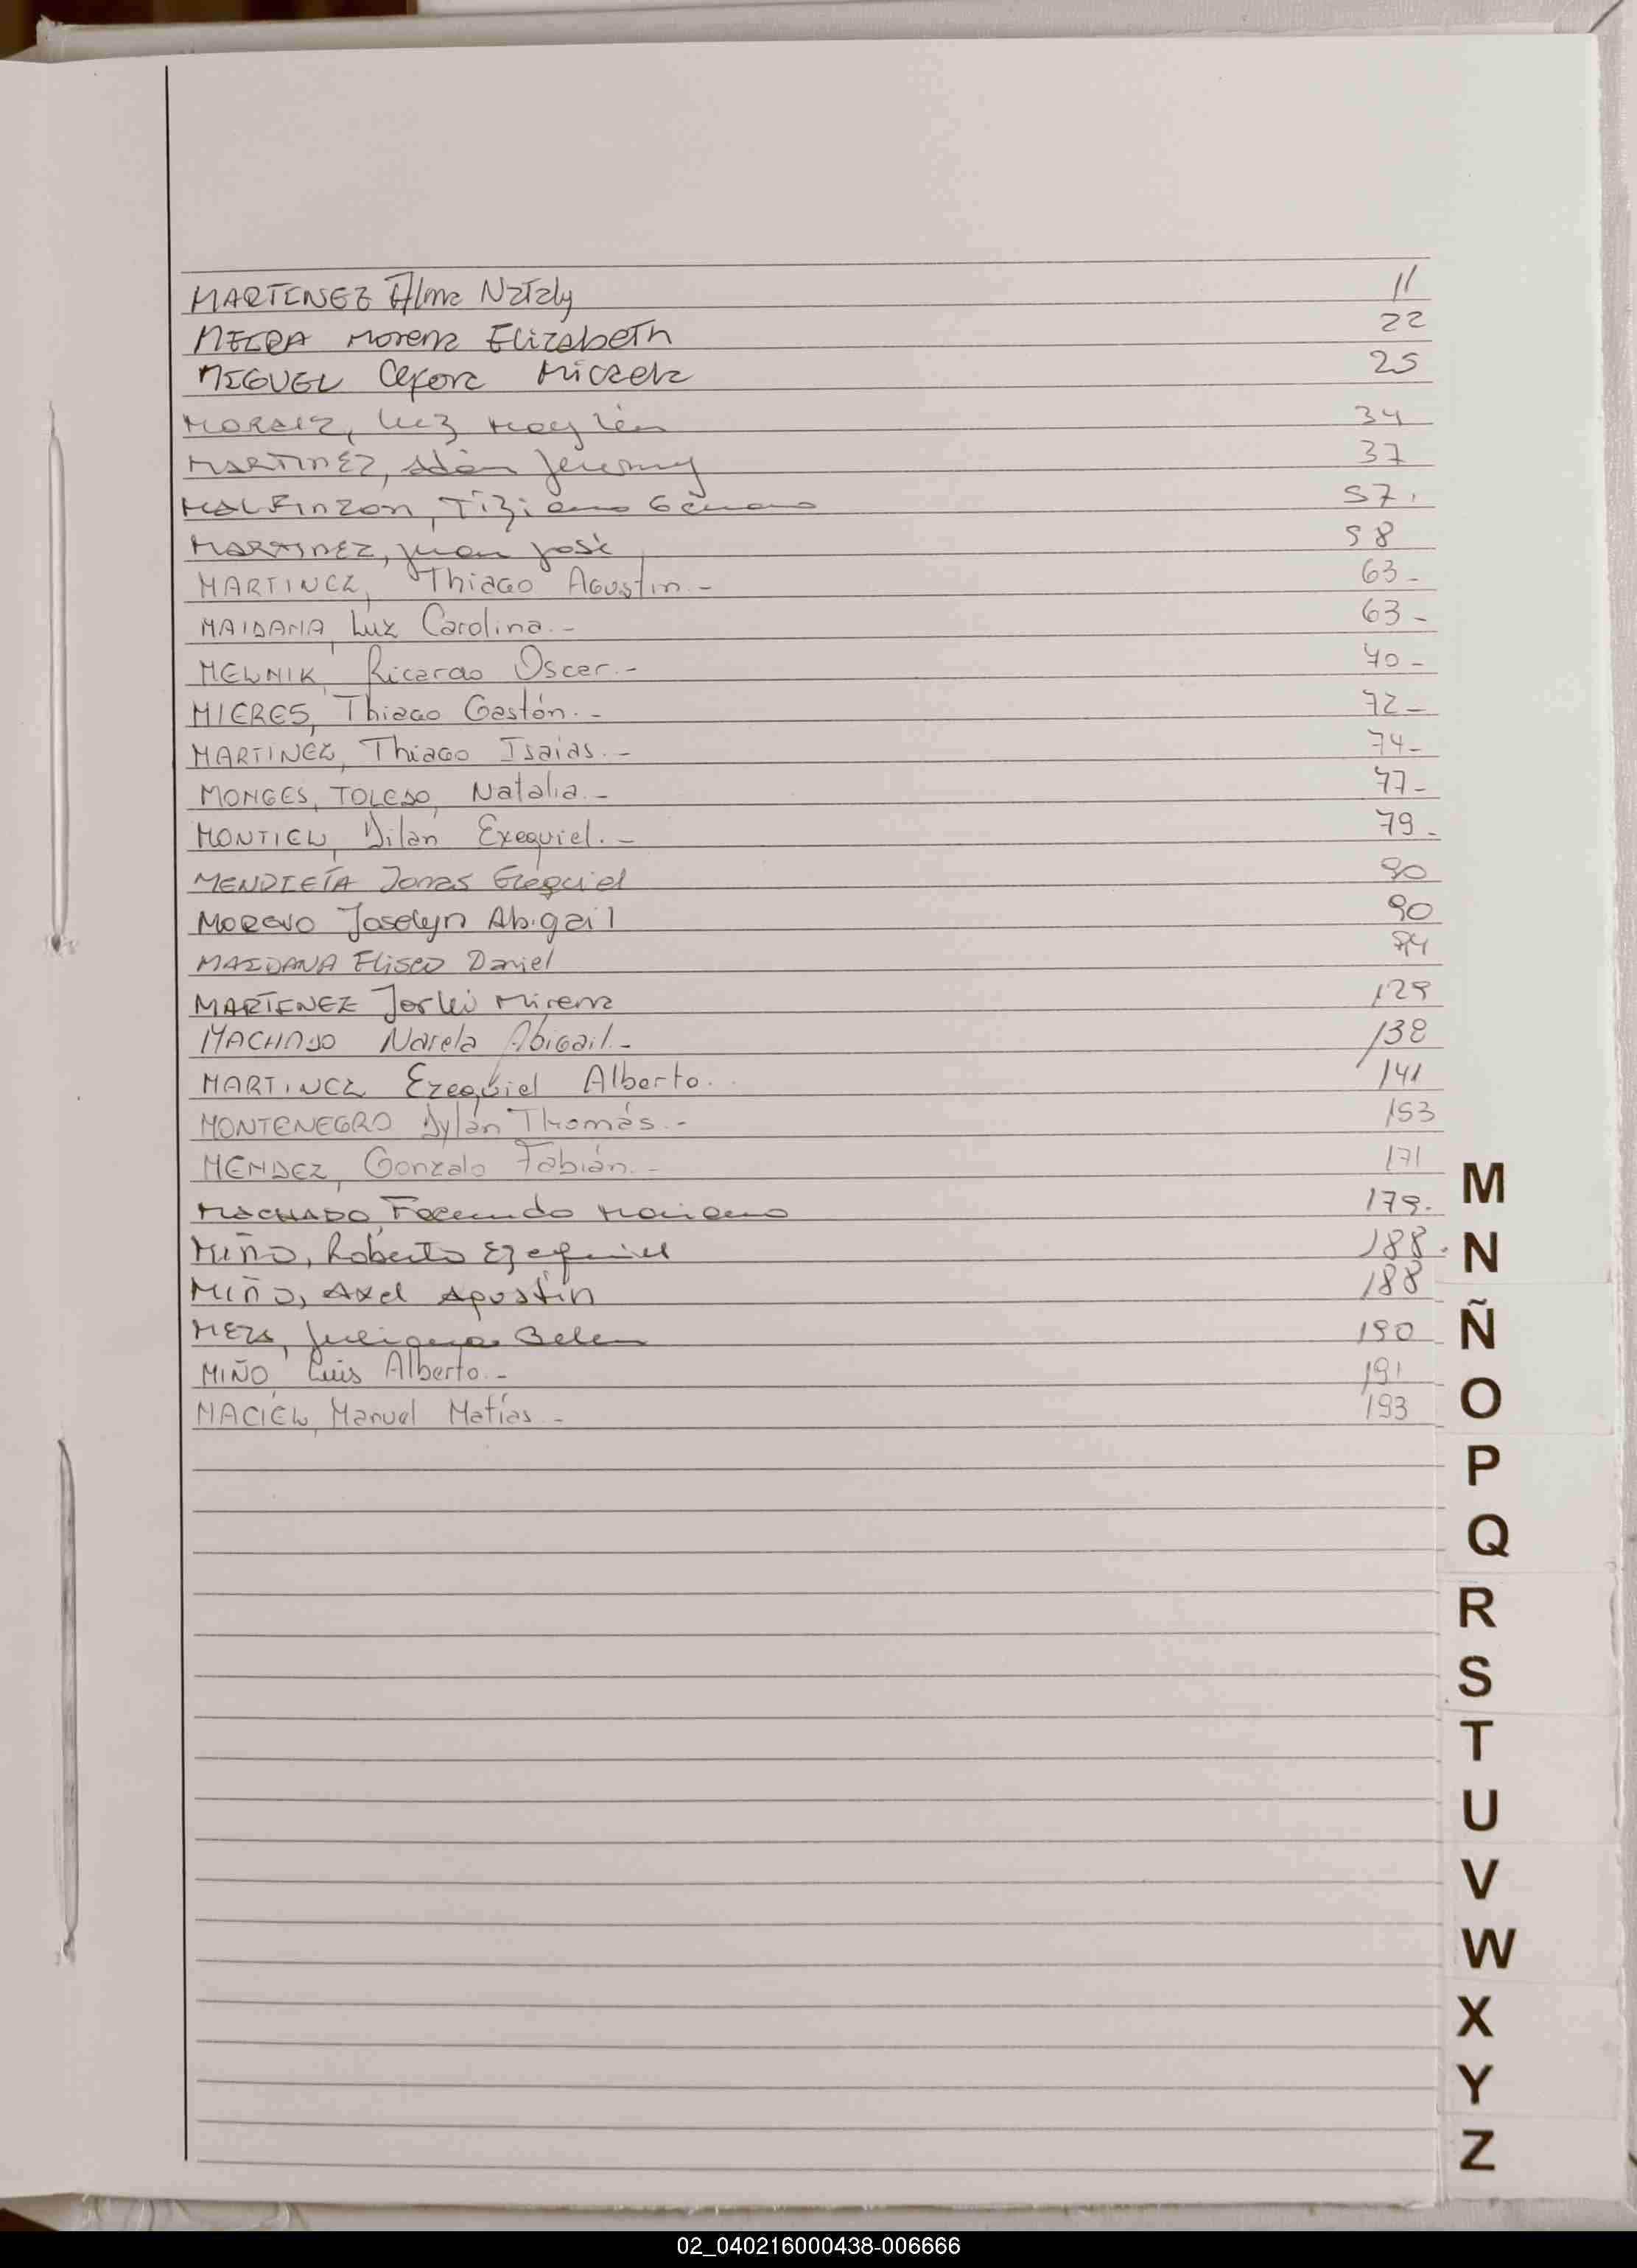 MARTINEZ Alma Nataly 11
MEIRA Morena Elizabeth 22
MIGUEL Cefora Micaela 25
MORAIZ, Luz Maylén 34
MARTINEZ, Adán Jeremy 37
MALFINZON, Tiziano Génaro 57.
MARTINEZ, Juan José 58
MARTINEZ, Thiago Agustin.- 63-
MAIDANA, Luz Carolina.- 63-
MELNIK, Ricardo Oscar.- 40-
MIERES, Thiago Gastón.- 72-
MARTÍNEZ, Thiago Isaias.- 74-
MONGES, TOLEDO, Natalia.- 77-
MONTIEL, Dilan Exequiel.- 79-
MENDIETA Jonas Ezequiel 90
MORENO Joselyn Abigail 90
MAIDANA Eliseo Daniel 94
MARTINEZ Mirena 129
MACHADO Narela Abigail.- 138
MARTINEZ Ezequiel Alberto. 141
MONTENEGRO Dylan Thomás.- 153
MENDEZ, Gonzalo Fabián.- 171
MACHADO, Facundo Mariano 179.
MIÑO, Roberto Ezequiel 188.
MIÑO, Axel Agustín 188
MEZA, Juliana Belen 190
MIÑO, Luis Alberto.- 191
MACIEL, Manuel Matías.- 193
M
N
Ñ
O
P
Q
R
S
T
U
V
W
X
Y
Z
02_040216000438-006666